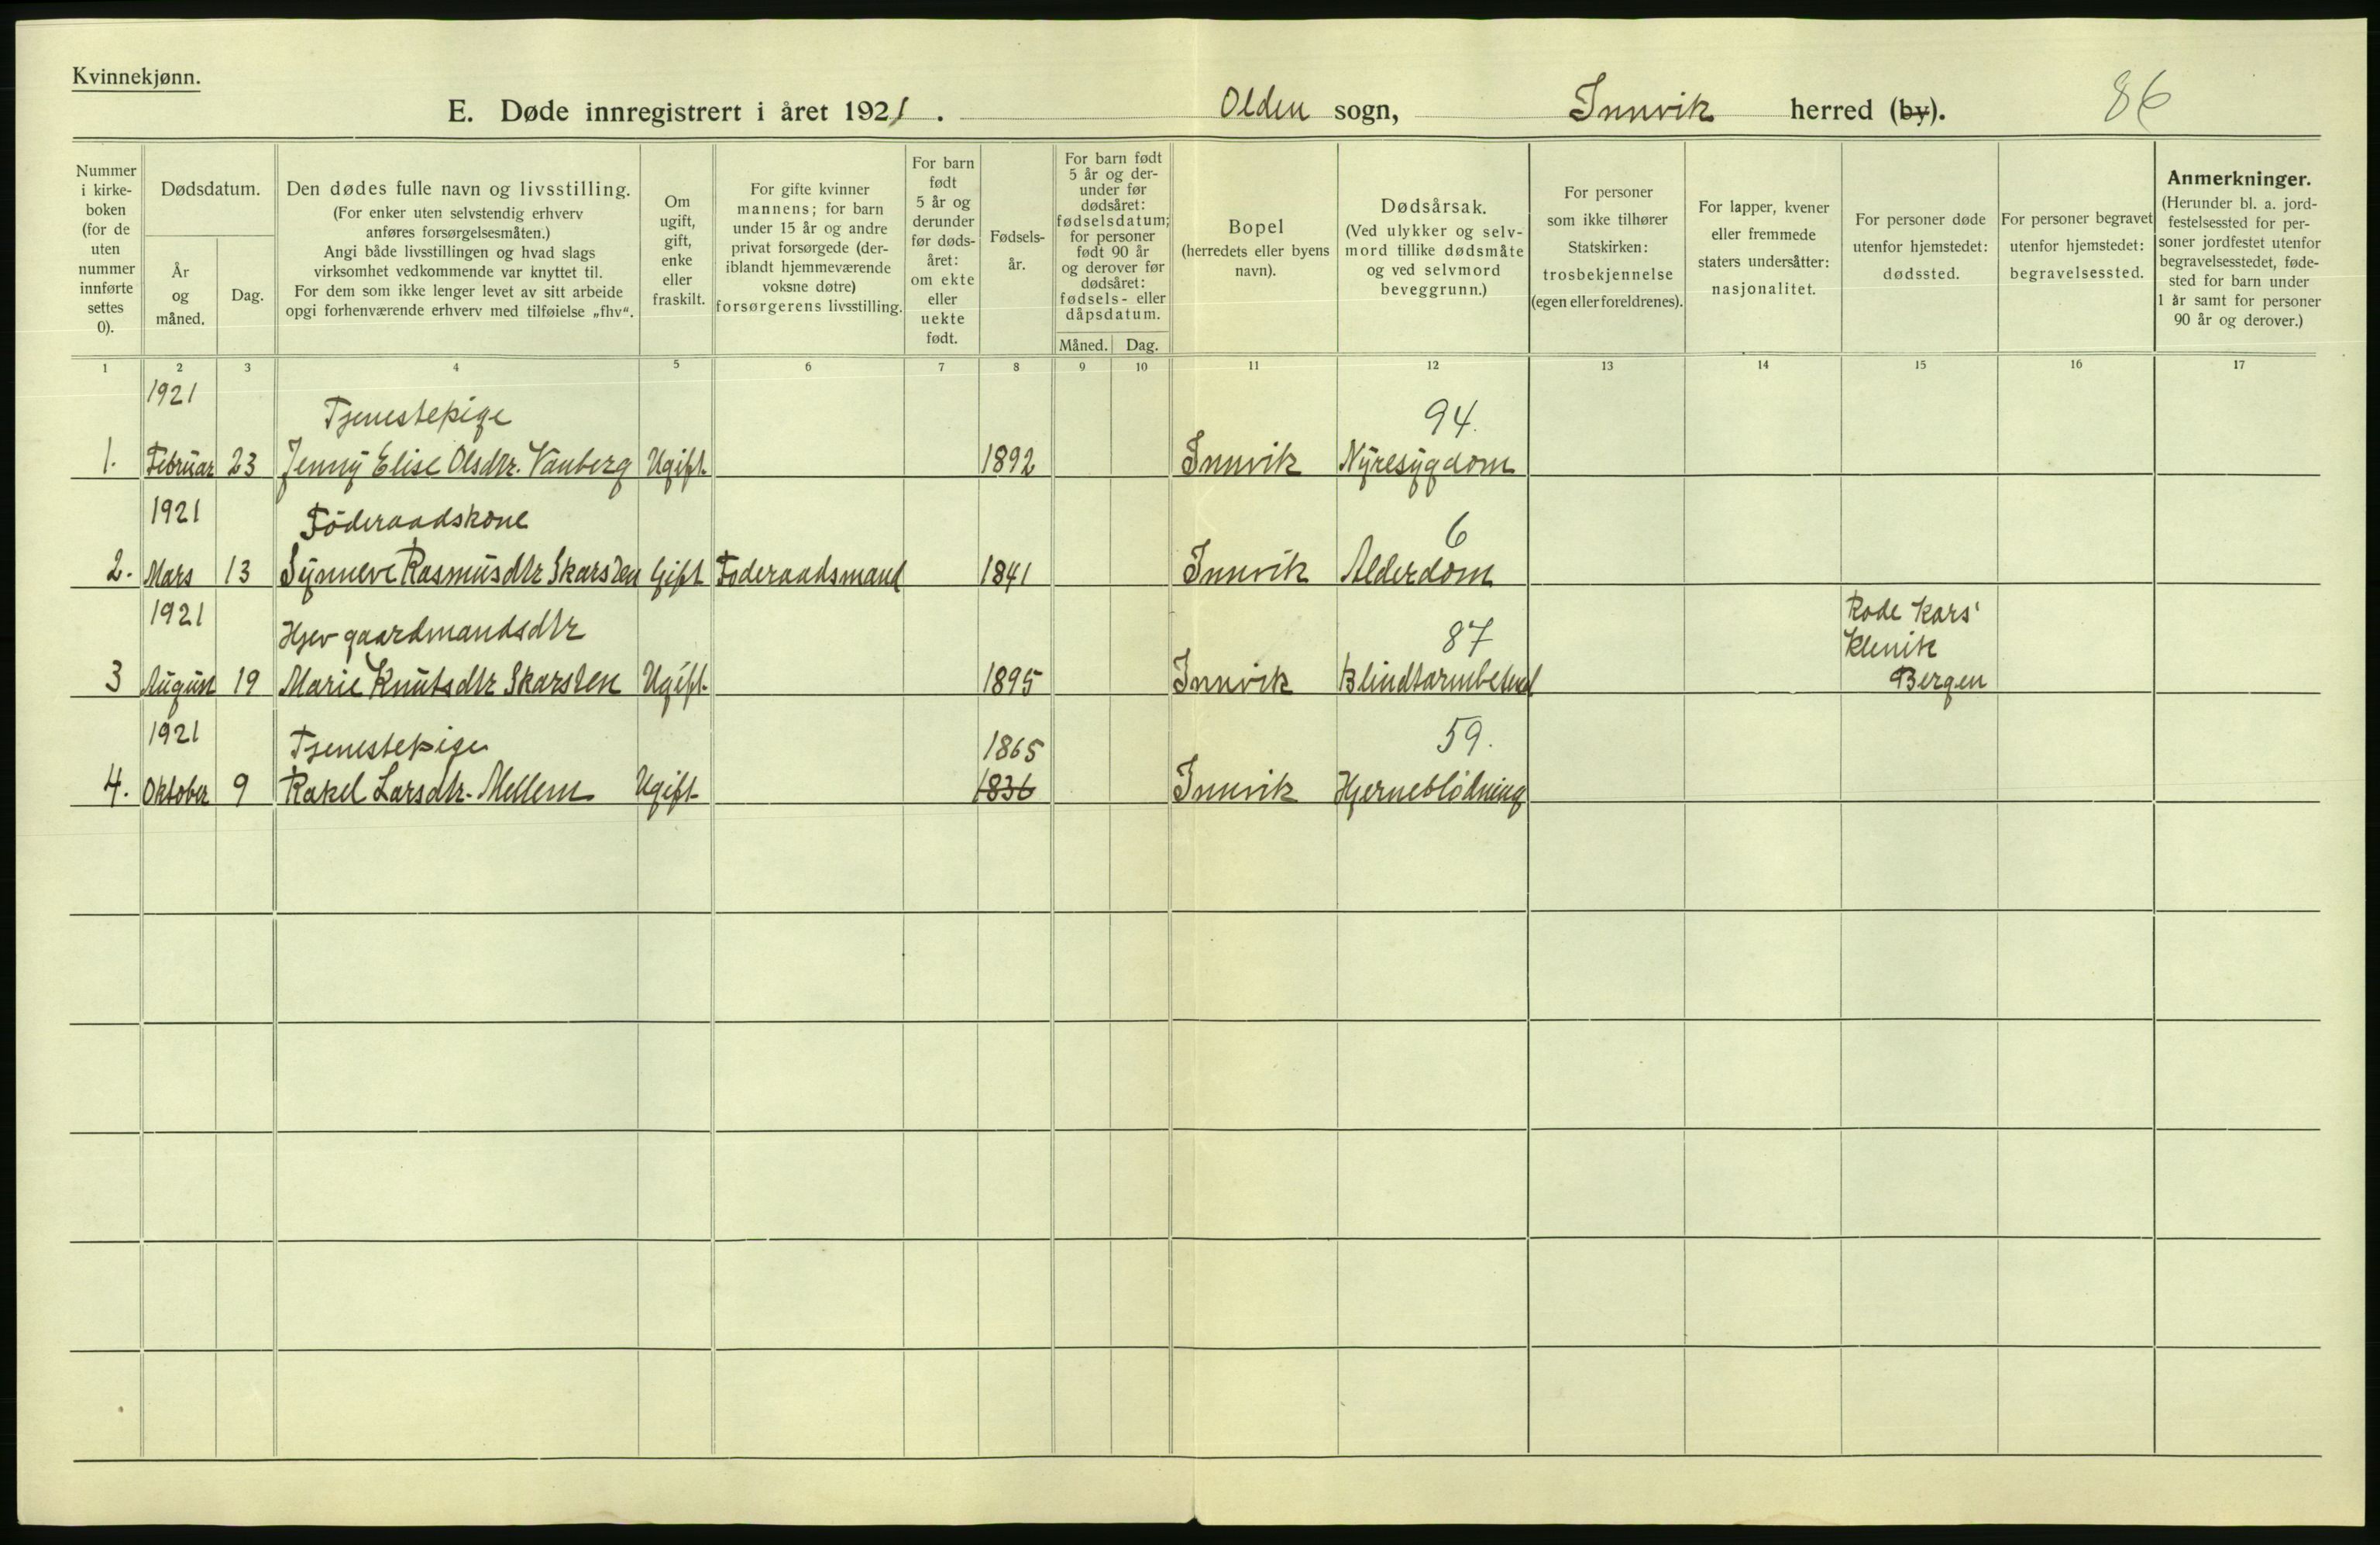 Kvinnekjønn.
E. Døde innregistrert i året 1921. Olden sogn, Innvik herred (by). 86
Nummer
i kirke-
boken
(for de
uten
nummer
innførte
settes
0).
Dødsdatum.
År
og
måned.
Dag.
Den dødes fulle navn og livsstilling.
(For enker uten selvstendig erhverv
anføres forsørgelsesmåten.)
Angi både livsstillingen og hvad slags
virksomhet vedkommende var knyttet til.
For dem som ikke lenger levet av sitt arbeide
opgi forhenværende erhverv med tilføielse „fhv“.
Om
ugift,
gift,
enke
eller
fraskilt.
For gifte kvinner
mannens; for barn
under 15 år og andre
privat forsørgede (der-
iblandt hjemmeværende
voksne døtre)
forsørgerens livsstilling.
For barn
født
5 år og
derunder
før døds-
året:
om ekte
eller
uekte
født.
Fødsels-
år.
For barn født
5 år og der-
under før
dødsåret:
fødselsdatum;
for personer
født 90 år
og derover før
dødsåret:
fødsels- eller
dåpsdatum.
Måned. Dag.
Bopel
(herredets eller byens
navn).
Dødsårsak.
(Ved ulykker og selv-
mord tillike dødsmåte
og ved selvmord
beveggrunn.)
For personer
som ikke tilhører
Statskirken:
trosbekjennelse
(egen eller foreldrenes).
For lapper, kvener
eller fremmede
staters undersåtter:
nasjonalitet.
For personer døde
utenfor hjemstedet:
dødssted.
For personer begravet
utenfor hjemstedet:
begravelsessted.
Anmerkninger.
(Herunder bl. a. jord-
festelsessted for per-
soner jordfestet utenfor
begravelsesstedet, føde-
sted for barn under
1 år samt for personer
90 år og derover.)
1 2 3 4 5 6 7 8 9 10 11 12 13 14 15 16 17
1921 Tjenestepige 94.
1. Februar 23 Jenny Elise Olsdtr. Vanberg Ugift 1892 Innvik Nyresygdom
1921 Föderaadskone 6
2. Mars 13 Synneve Rasmusdtr Skarsten Gift Foderaadsmand 1841 Innvik Alderdom
1921 Hjev gaardmandsdtr 87 Rode Kors'
Klenik
3 August 19 Marie Knutsdtr Skarsten Ugift 1895 Innvik Blindtarmbetend Bergen
1921 Tjenestepige 1865 59.
4. Oktober 9 Rakel Larsdtr. Mellem Ugift 1836 Innvik Hjerneblödning